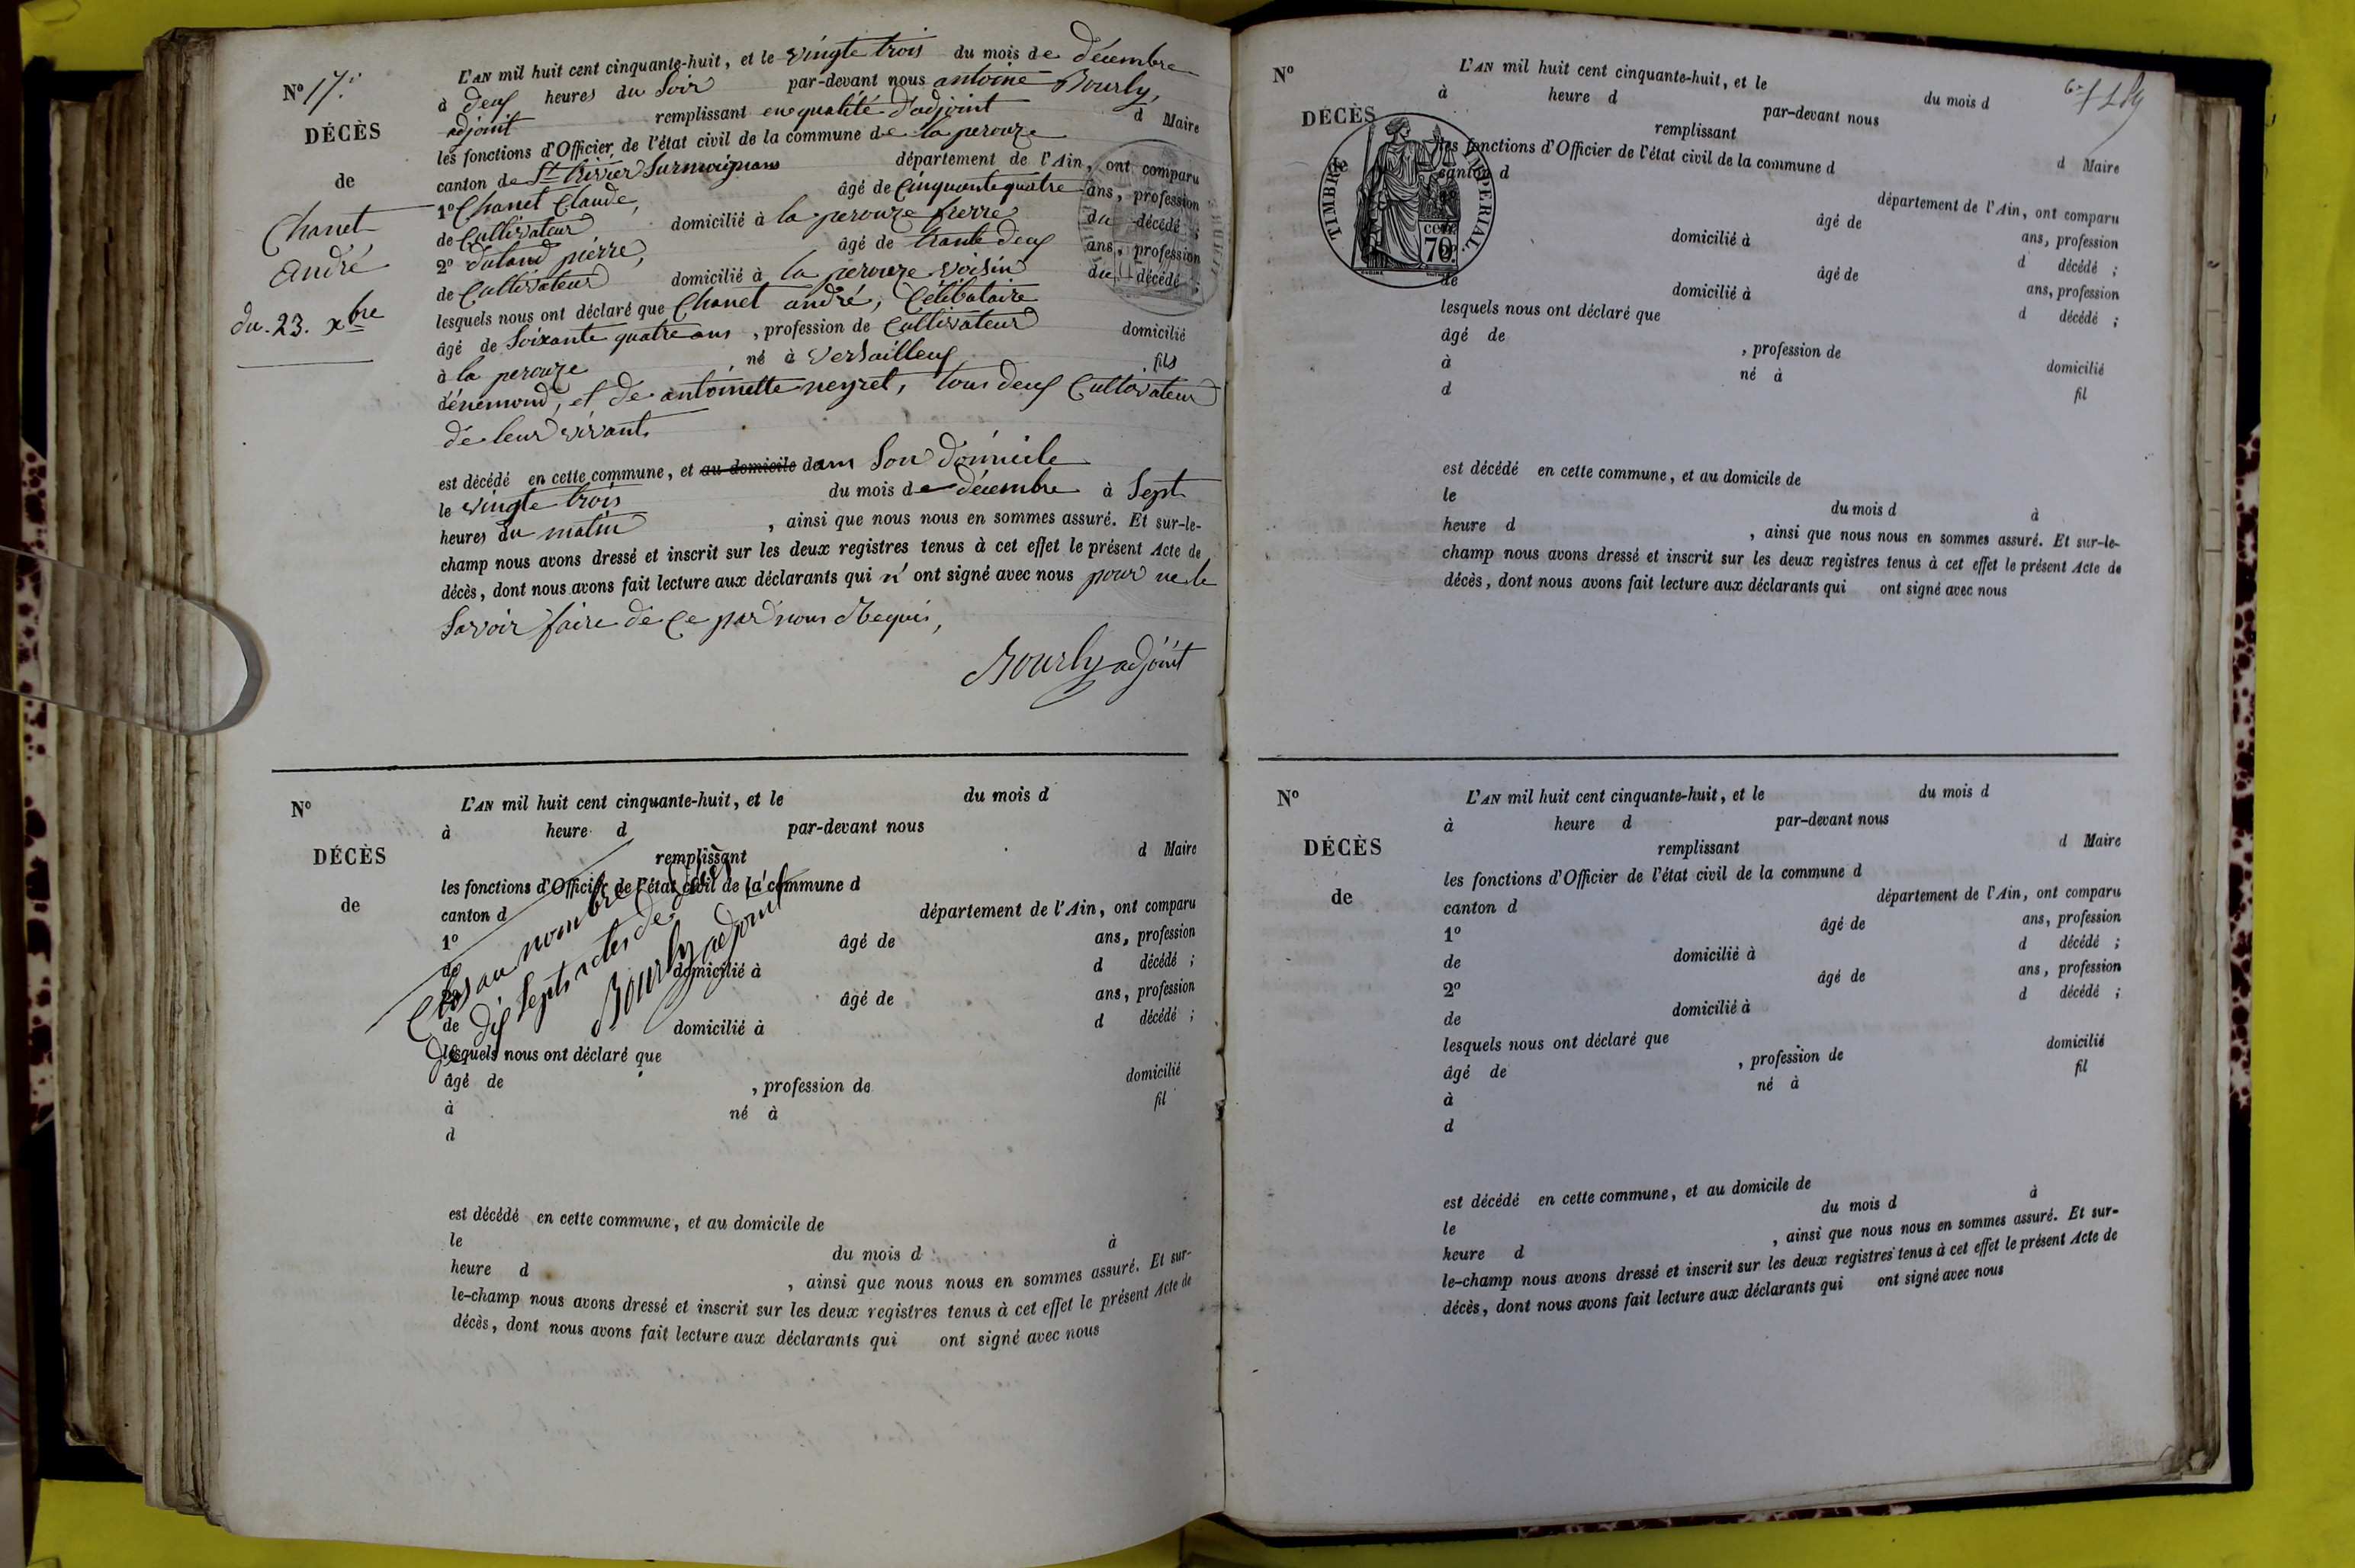 N° 17.
DÉCÈS
de
Chanet
andré
du. 23. xbre
L'AN mil huit cent cinquante-huit, et le vingte trois du mois de décembre
à deux heures du Soir par-devant nous antoine Bourly,
adjoint remplissant en qualité d'adjoint d Maire
les fonctions d'Officier de l'état civil de la commune de la perouze
canton de St trivier Surmoignans département de l'Ain, ont comparu
1° Chanet Claude, âgé de Cinquante quatre ans, profession
de Cultivateur domicilié à la perouze frerre du décédé ;
2° duland pierre, âgé de trante deux ans, profession
de Cultivateur domicilié à la perouze voisin du décédé ;
lesquels nous ont déclaré que Chanet andré, Célibataire
âgé de Soixante quatre ans , profession de Cultivateur domicilié
à la perouze né à Versailleux fils
d'énemond, et de antoinette neyret, tous deux Cultivateur
de leur vivant
est décédé en cette commune, et au domicile dans Son domicile
le vingte trois du mois de décembre à Sept
heures du matin , ainsi que nous nous en sommes assuré. Et sur-le-
champ nous avons dressé et inscrit sur les deux registres tenus à cet effet le présent Acte de
décès, dont nous avons fait lecture aux déclarants qui n' ont signé avec nous pour ne le
Savoir faire de Ce par nous Requis,
Bourly adjoint
N°
DÉCÈS
de
L'AN mil huit cent cinquante-huit, et le du mois d
à heure d par-devant nous
remplissant d Maire
les fonctions d'Officier de l'état civil de la commune d
canton d département de l'Ain, ont comparu
1° âgé de ans, profession
de domicilié à d décédé ;
2° âgé de ans, profession
de domicilié à d décédé ;
Clos au nombre
de dix Septs actes de décès
Bourly adjoint
lesquels nous ont déclaré que
âgé de , profession de domicilié
à né à fil
d
est décédé en cette commune, et au domicile de
le du mois d à
heure d , ainsi que nous nous en sommes assuré. Et sur-
le-champ nous avons dressé et inscrit sur les deux registres tenus à cet effet le présent Acte de
décès, dont nous avons fait lecture aux déclarants qui ont signé avec nous
N°
DÉCÈS
TIMBRE IMPÉRIAL.
cent.
70
L'AN mil huit cent cinquante-huit, et le du mois d
à heure d par-devant nous
remplissant d Maire
les fonctions d'Officier de l'état civil de la commune d
canton d département de l'Ain, ont comparu
âgé de ans, profession
domicilié à d décédé ;
âgé de ans, profession
de domicilié à d décédé ;
lesquels nous ont déclaré que
âgé de , profession de domicilié
à né à fil
d
est décédé en cette commune, et au domicile de
le du mois d à
heure d , ainsi que nous nous en sommes assuré. Et sur-le-
champ nous avons dressé et inscrit sur les deux registres tenus à cet effet le présent Acte de
décès, dont nous avons fait lecture aux déclarants qui ont signé avec nous
N°
DÉCÈS
de
L'AN mil huit cent cinquante-huit, et le du mois d
à heure d par-devant nous
remplissant d Maire
les fonctions d'Officier de l'état civil de la commune d
canton d département de l'Ain, ont comparu
1° âgé de ans, profession
de domicilié à d décédé ;
2° âgé de ans, profession
de domicilié à d décédé ;
lesquels nous ont déclaré que
âgé de , profession de domicilié
à né à fil
d
est décédé en cette commune, et au domicile de
le du mois d à
heure d , ainsi que nous nous en sommes assuré. Et sur-
le-champ nous avons dressé et inscrit sur les deux registres tenus à cet effet le présent Acte de
décès, dont nous avons fait lecture aux déclarants qui ont signé avec nous